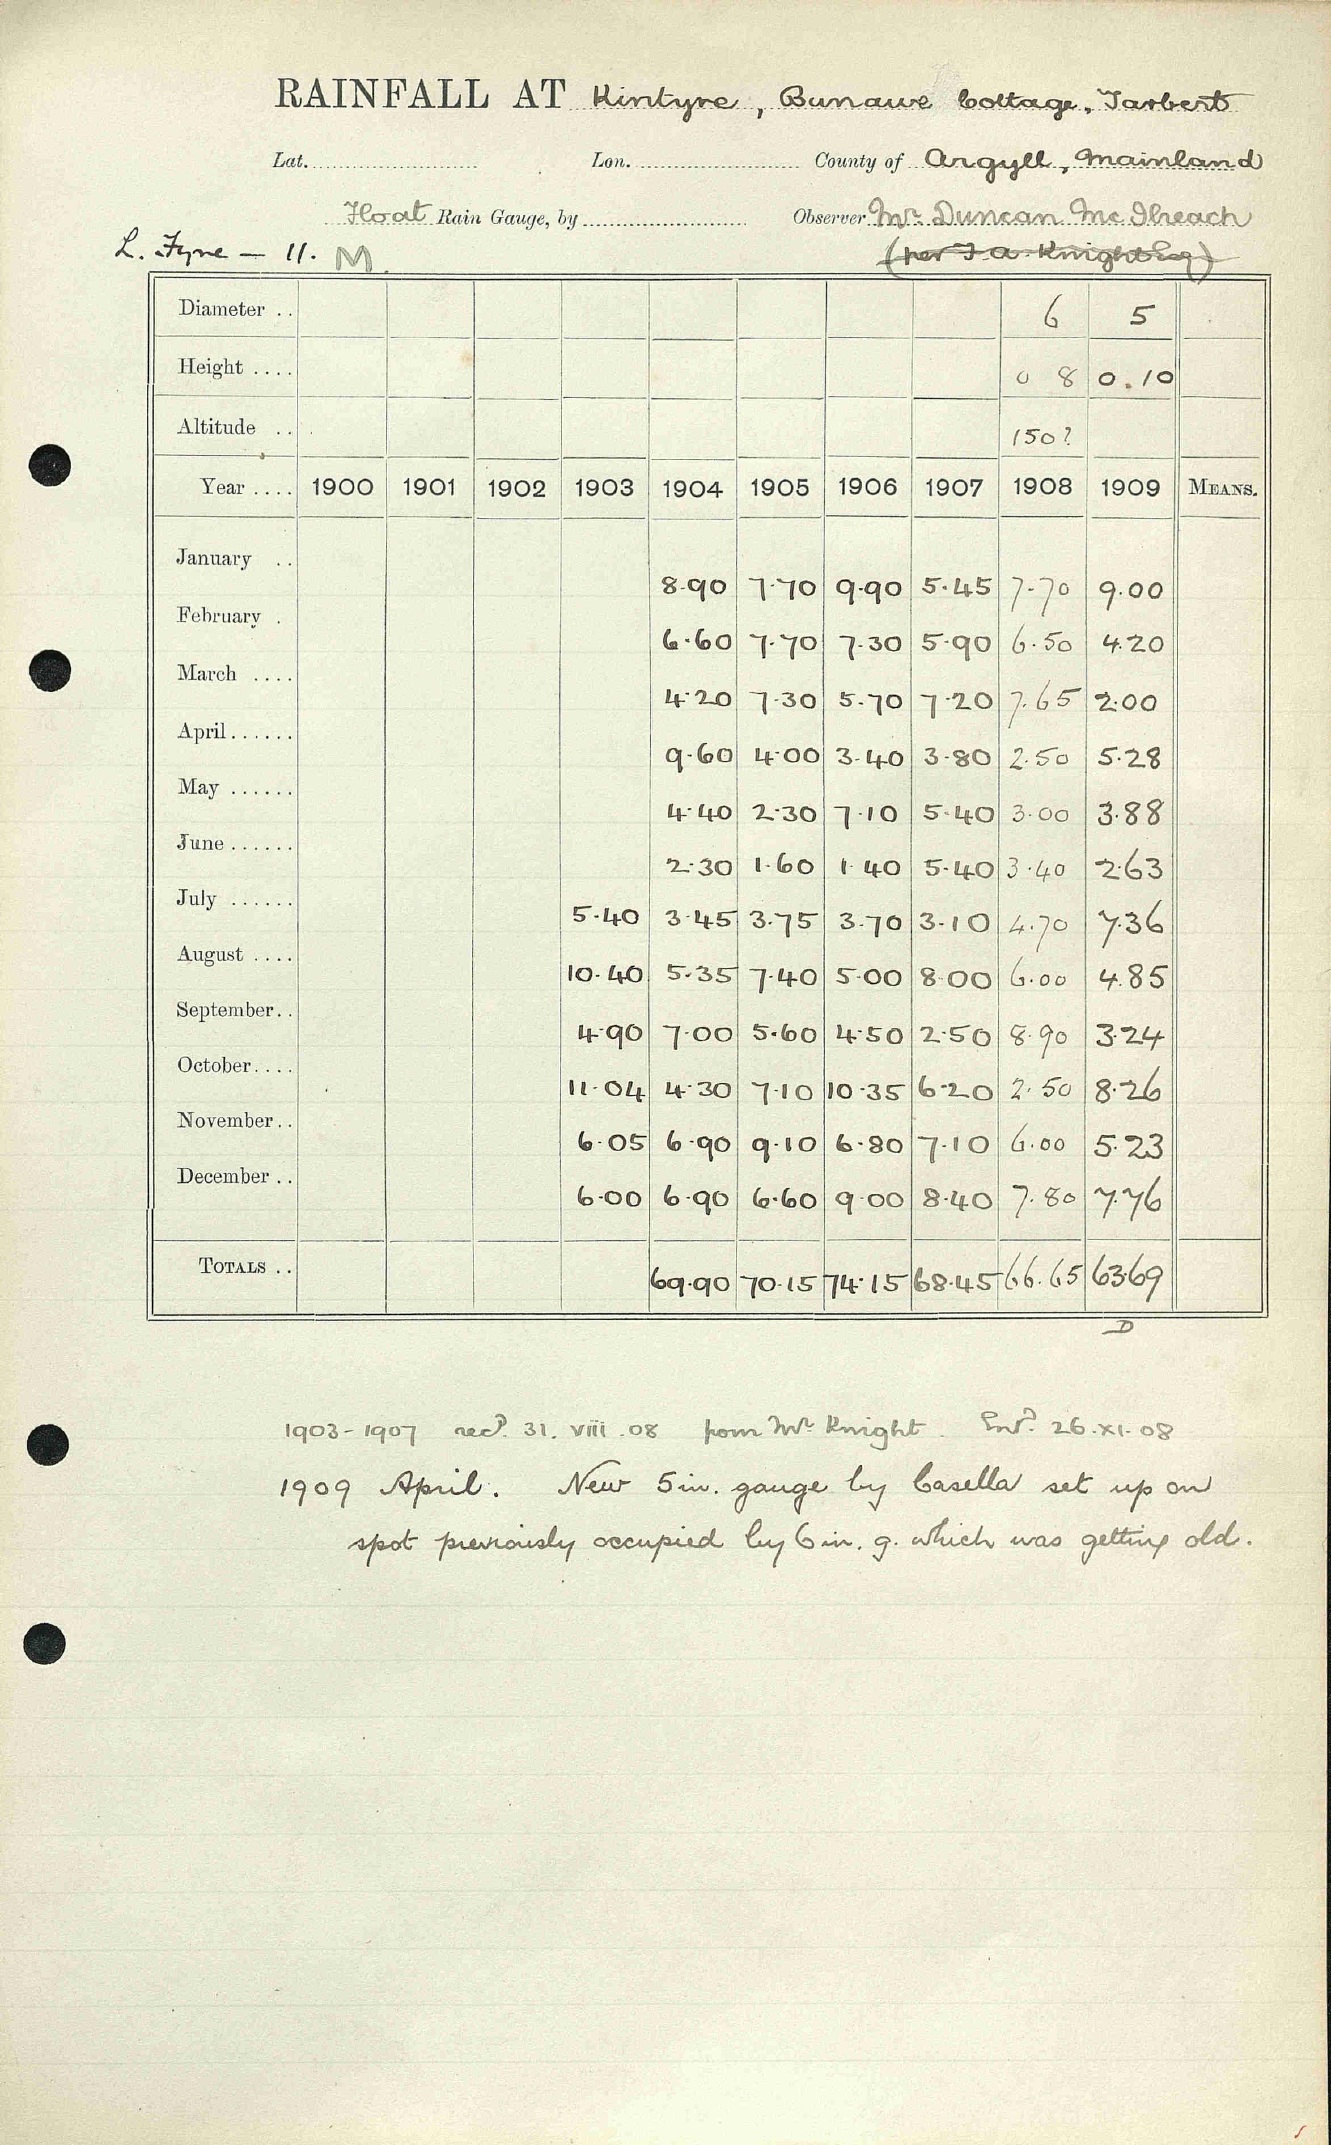 RAINFALL AT Kintyre, Bunawe Cottage, Tarbert
Lat. Lon. County of Argyll, Mainland
Float Rain Gauge, by Observer Mr. Duncan Mc Ilreach
L. Fyne — 11. M (per J. A. Knight Esq)
Diameter .. 6 5
Height .... 0 8 0.10
Altitude .. 150?
Year .... 1900 1901 1902 1903 1904 1905 1906 1907 1908 1909 MEANS.
January .. 8.90 7.70 9.90 5.45 7.70 9.00
February . 6.60 7.70 7.30 5.90 6.50 4.20
March .... 4.20 7.30 5.70 7.20 7.65 2.00
April...... 9.60 4.00 3.40 3.80 2.50 5.28
May ...... 4.40 2.30 7.10 5.40 3.00 3.88
June...... 2.30 1.60 1.40 5.40 3.40 2.63
July ...... 5.40 3.45 3.75 3.70 3.10 4.70 7.36
August .... 10.40 5.35 7.40 5.00 8.00 6.00 4.85
September.. 4.90 7.00 5.60 4.50 2.50 8.90 3.24
October.... 11.04 4.30 7.10 10.35 6.20 2.50 8.26
November.. 6.05 6.90 9.10 6.80 7.10 6.00 5.23
December .. 6.00 6.90 6.60 9.00 8.40 7.80 7.76
TOTALS .. 69.90 70.15 74.15 68.45 66.65 63.69
D
1903-1907 recd. 31. viii. 08 from Mr. Knight. Entd. 26. xi. 08
1909 April. New 5 in. gauge by Casella set up on
spot previously occupied by 6 in. g. which was getting old.